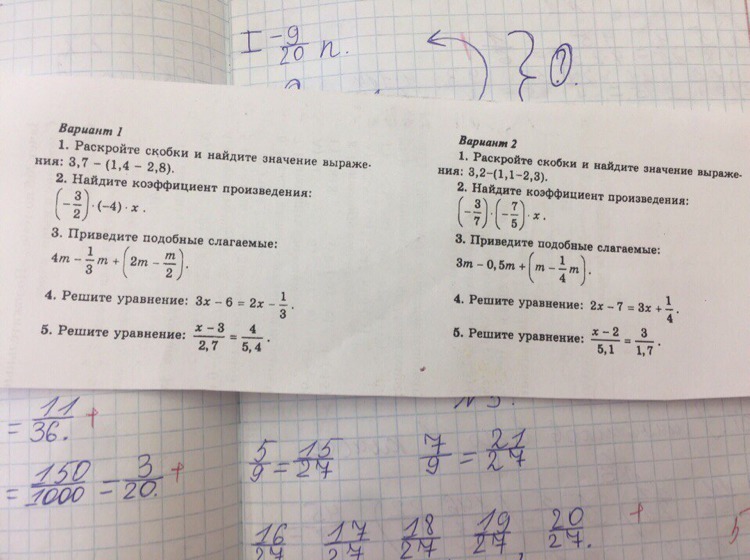 I -9/20 п.
}?
Вариант 1
1. Раскройте скобки и найдите значение выраже-
ния: 3,7 – (1,4 – 2,8).
2. Найдите коэффициент произведения:
(-3/2) · (-4) · x .
3. Приведите подобные слагаемые:
4m – 1/3 m + (2m – m/2).
4. Решите уравнение: 3x – 6 = 2x – 1/3 .
5. Решите уравнение: (x – 3)/2,7 = 4/5,4 .
Вариант 2
1. Раскройте скобки и найдите значение выраже-
ния: 3,2–(1,1–2,3).
2. Найдите коэффициент произведения:
(-3/7) · (-7/5) · x .
3. Приведите подобные слагаемые:
3m – 0,5m + (m – 1/4 m).
4. Решите уравнение: 2x – 7 = 3x + 1/4 .
5. Решите уравнение: (x – 2)/5,1 = 3/1,7 .
= 11/36. +
= 150/1000 = 3/20. +
5/9 = 15/27 7/9 = 21/27
16/27 17/27 18/27 19/27, 20/27. +
5